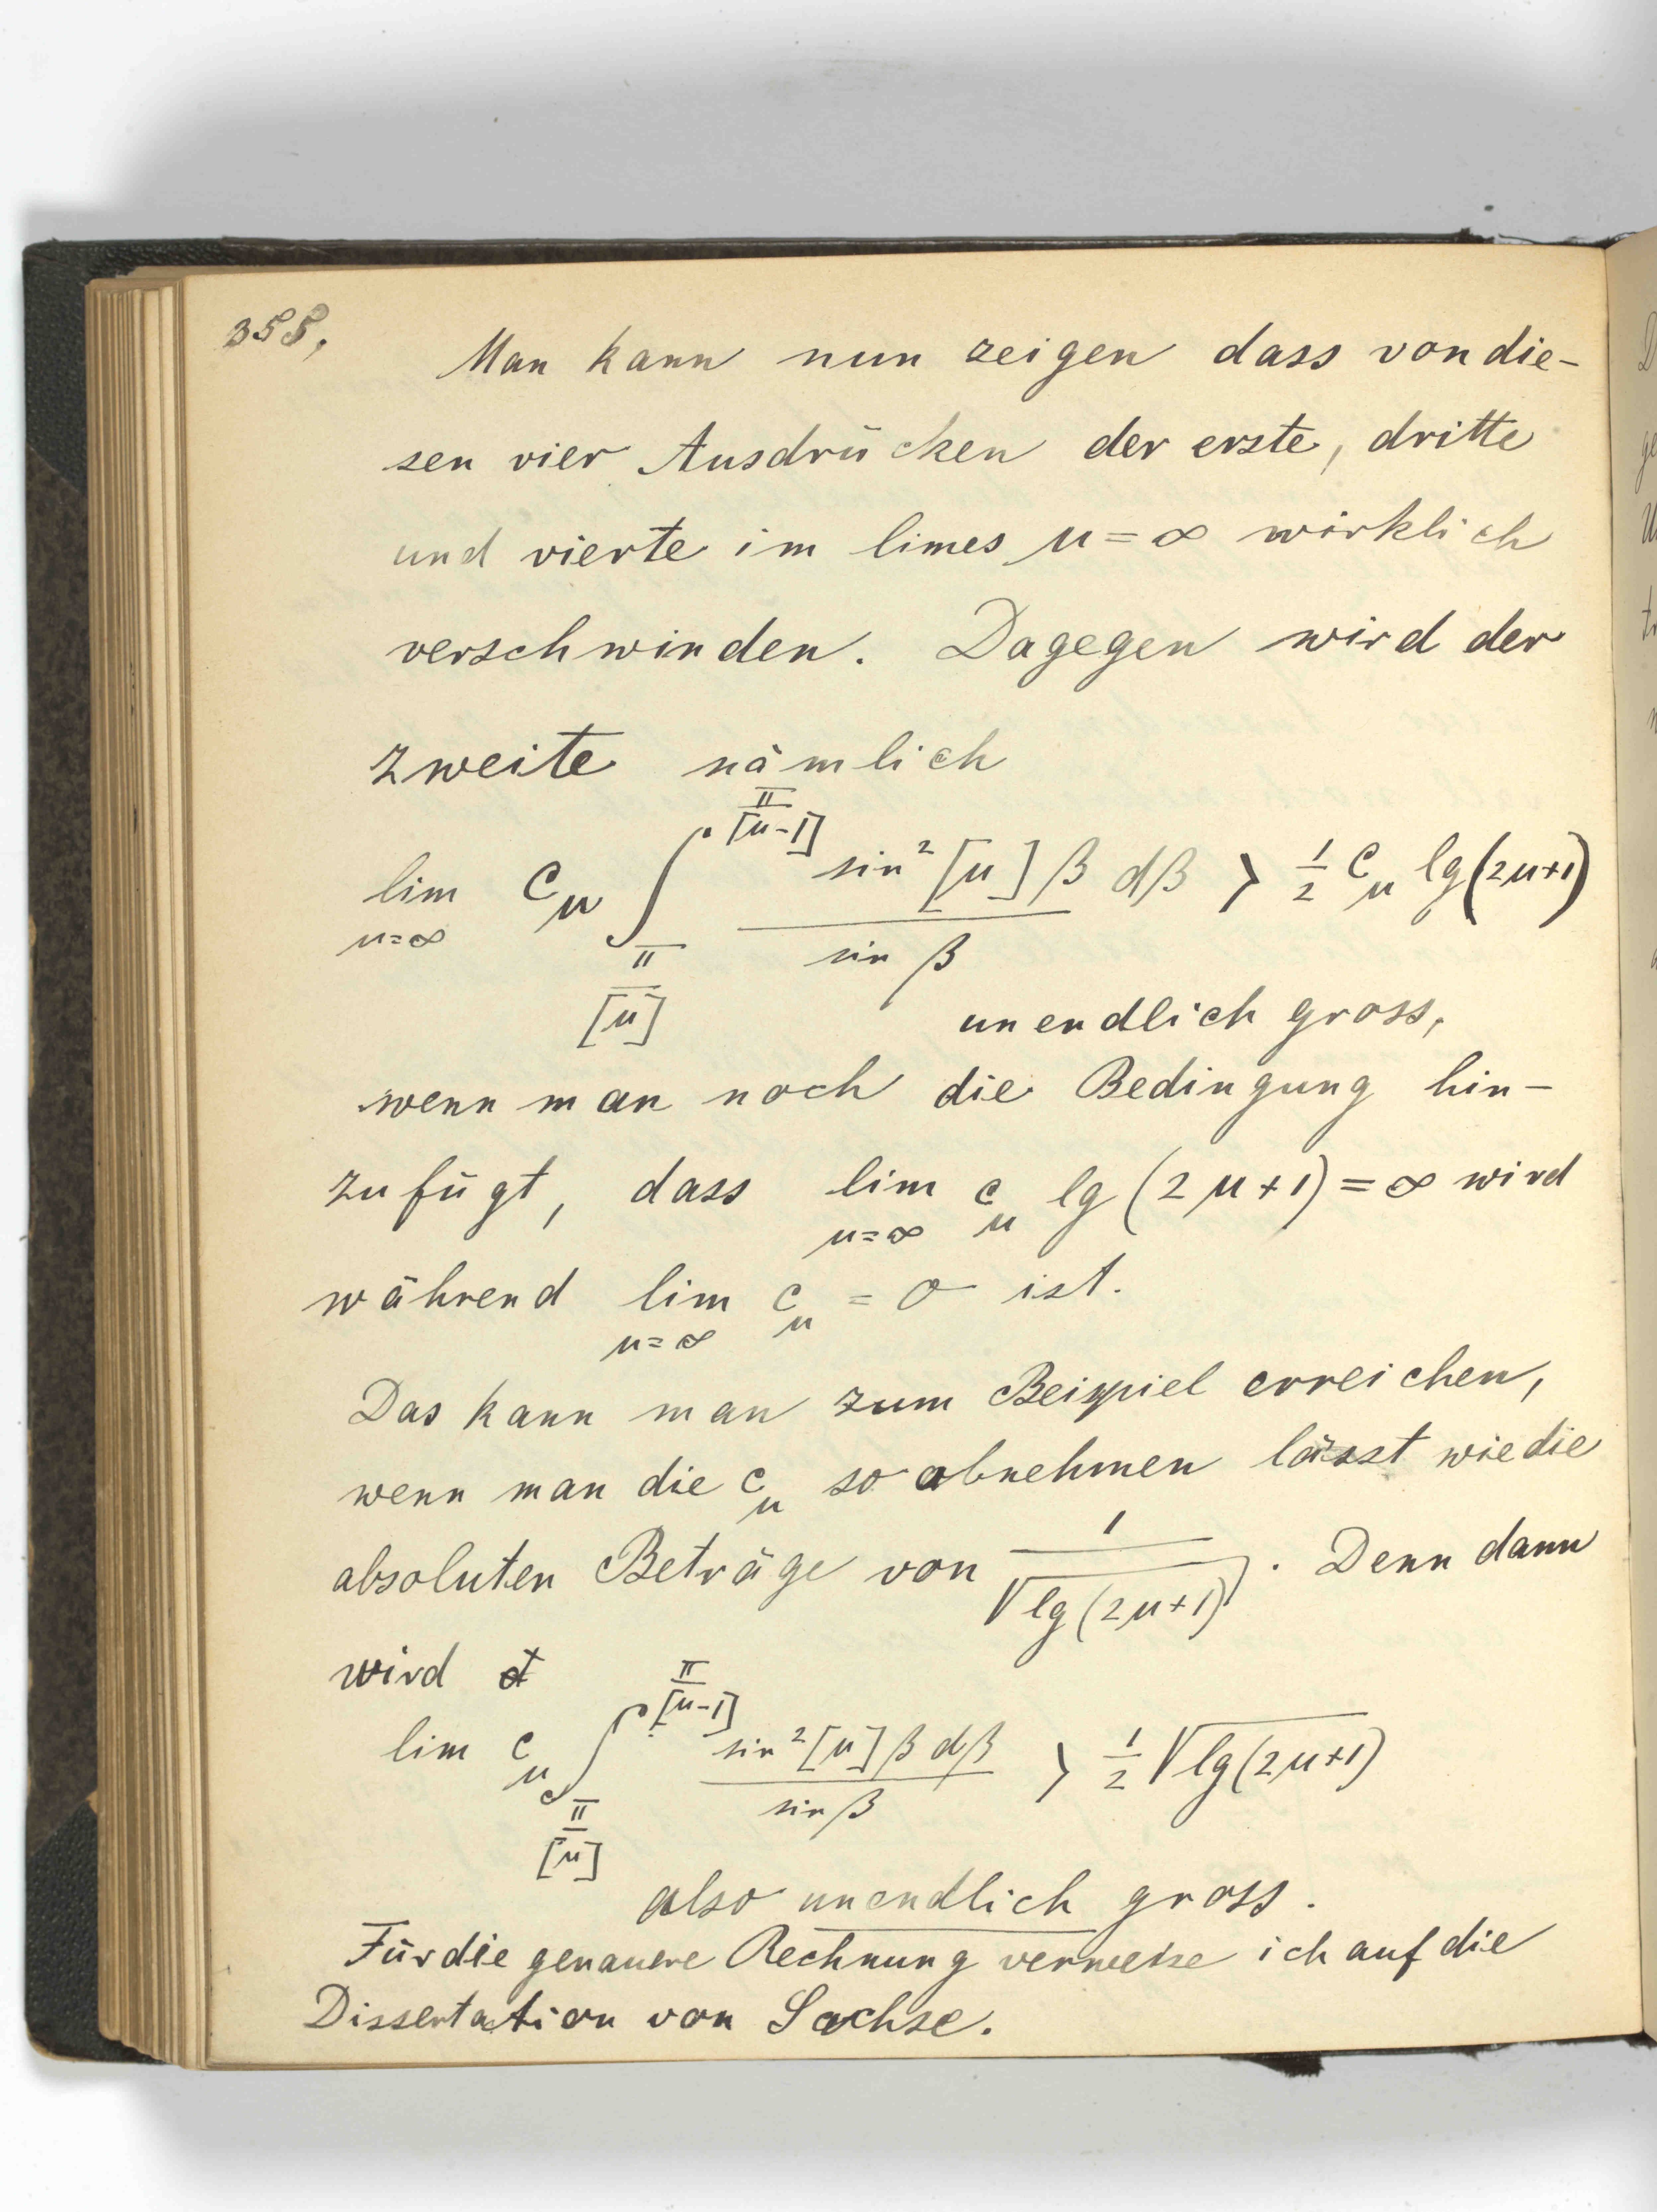 358.
Man kann nun zeigen dass von die-
sen vier Ausdrücken der erste, dritte
und vierte im limes μ = ∞ wirklich
verschwinden. Dagegen wird der
zweite nämlich
lim_{μ=∞} c_μ ∫_{π/[μ]}^{π/[μ-1]} sin²[μ]β dβ / sin β > 1/2 c_μ lg(2μ+1)
unendlich gross,
wenn man noch die Bedingung hin-
zufügt, dass lim_{μ=∞} c_μ lg(2μ+1) = ∞ wird
während lim_{μ=∞} c_μ = 0 ist.
Das kann man zum Beispiel erreichen,
wenn man die c_μ so abnehmen lässt wie die
absoluten Beträge von 1/√lg(2μ+1). Denn dann
wird
lim c_μ ∫_{π/[μ]}^{π/[μ-1]} sin²[μ]β dβ / sin β > 1/2 √lg(2μ+1)
also unendlich gross.
Für die genauere Rechnung verweise ich auf die
Dissertation von Sachse.